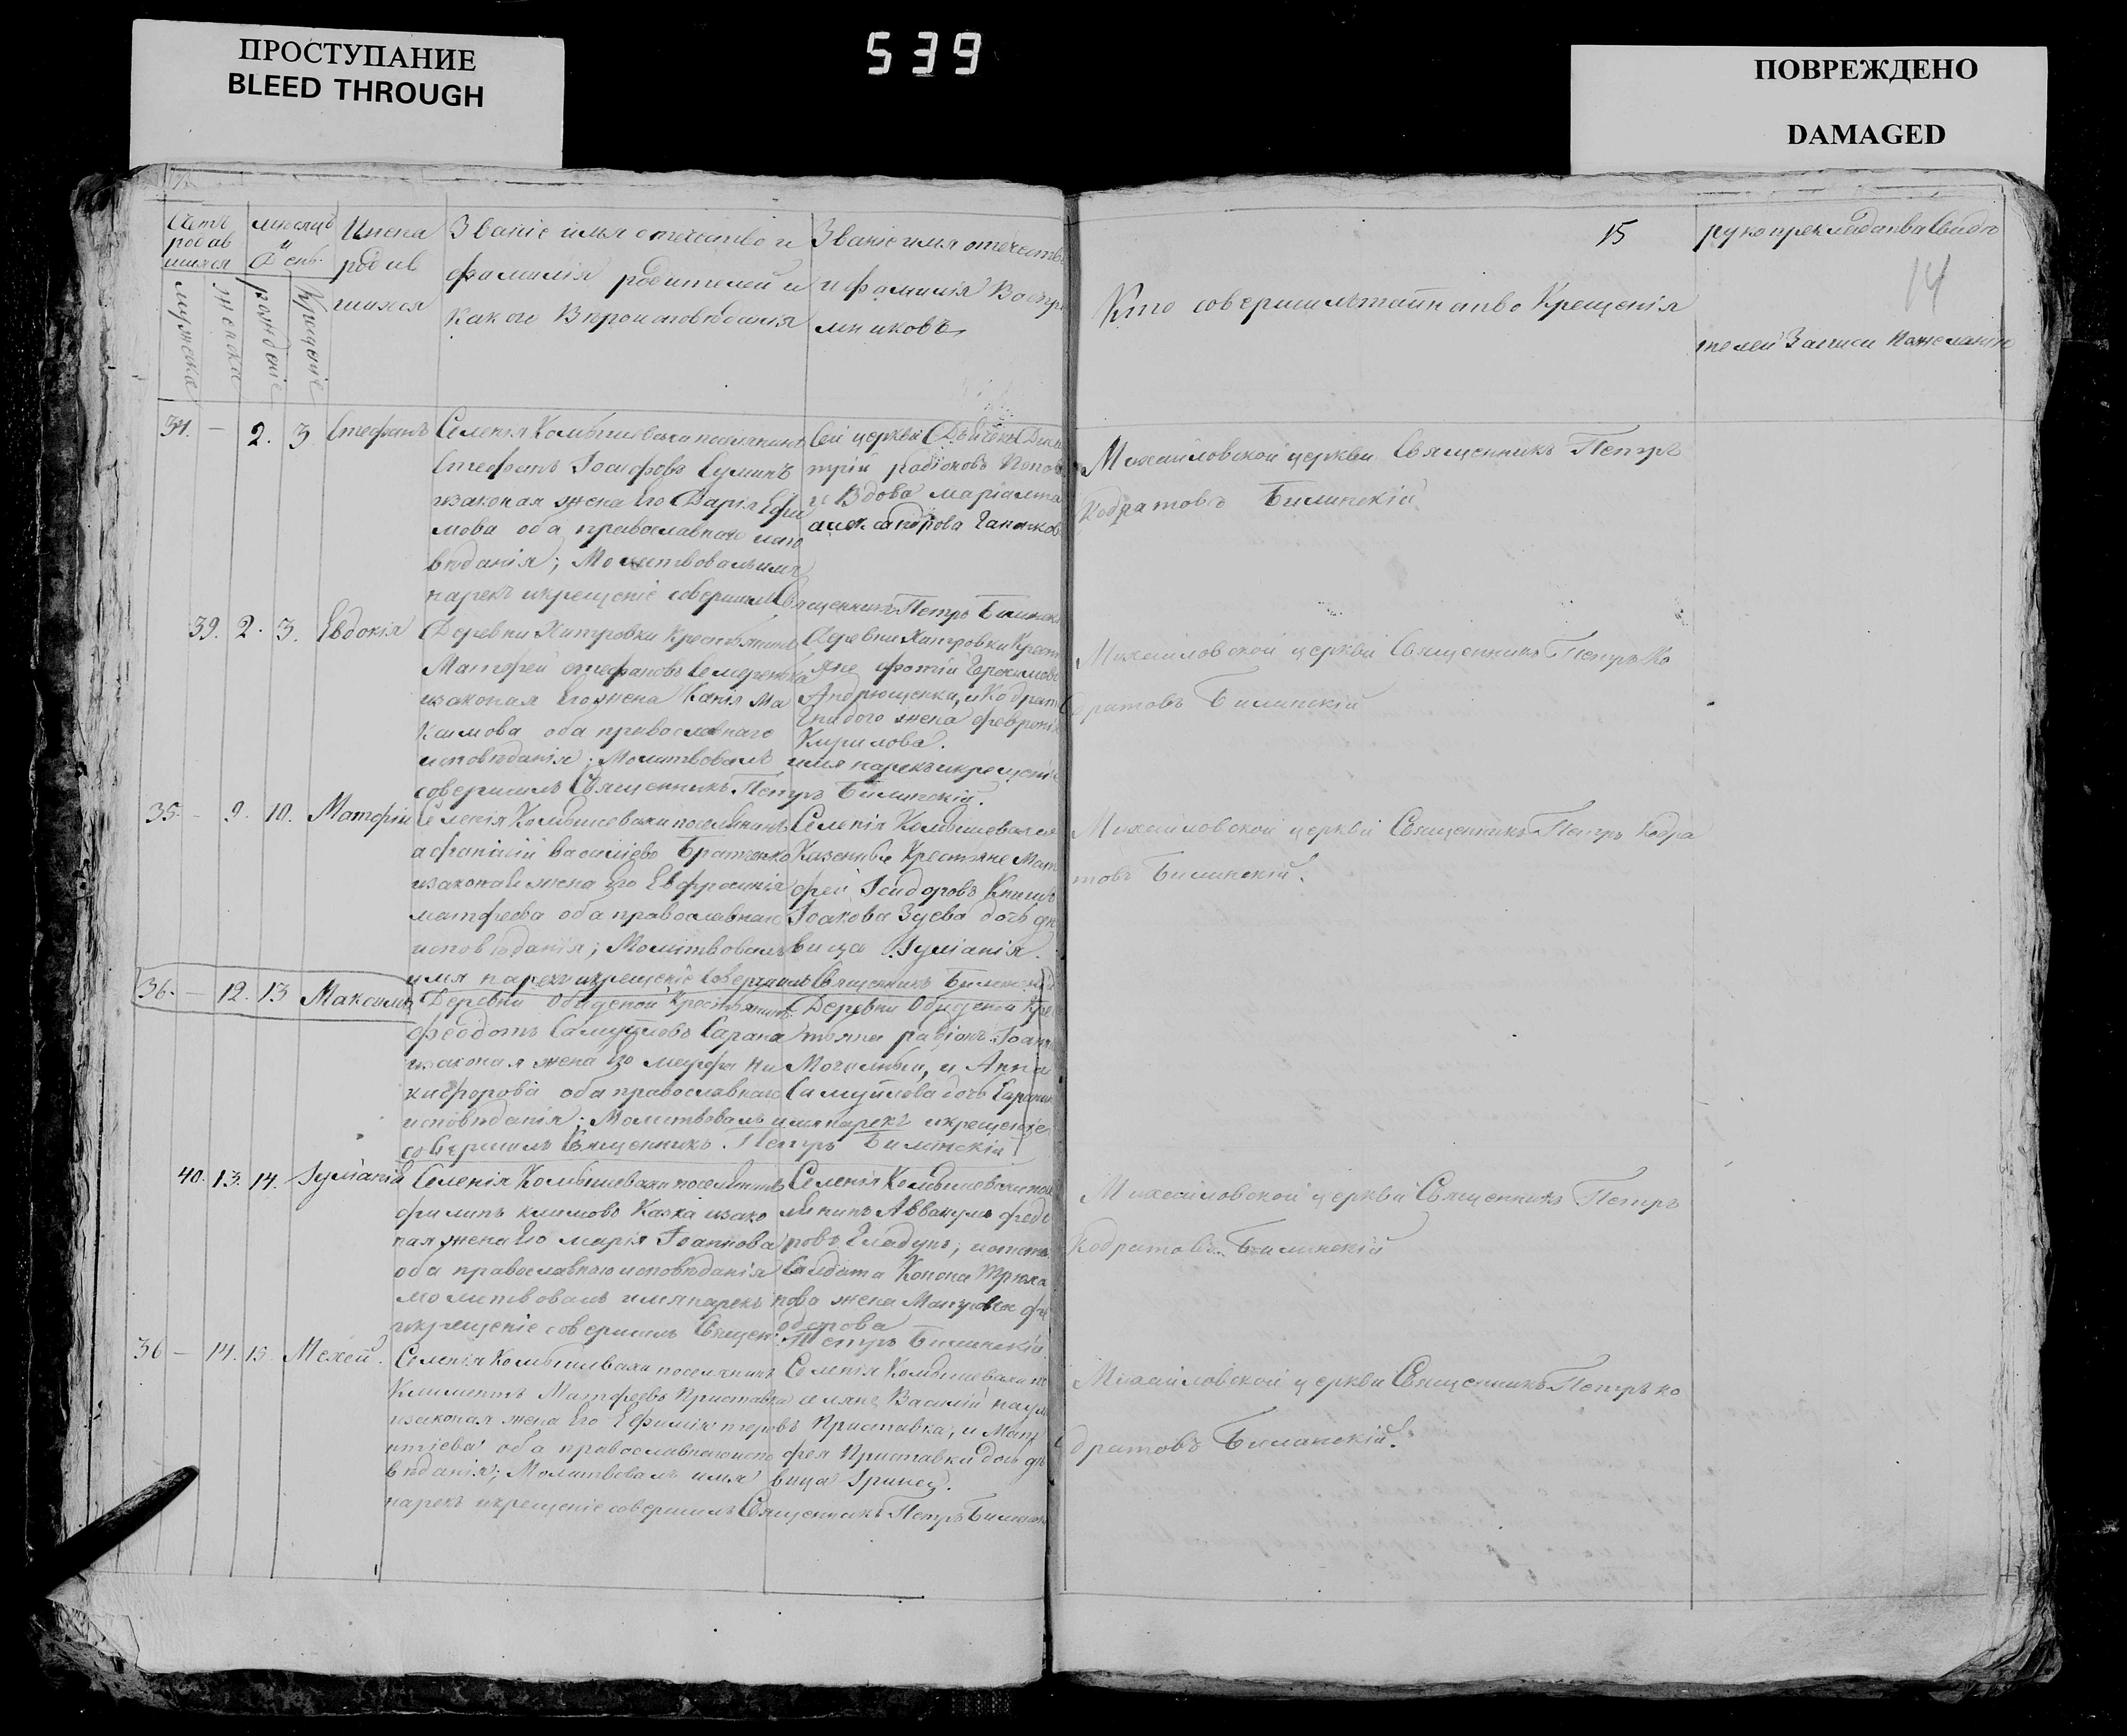 ПРОСТУПАНИЕ
BLEED THROUGH
539
ПОВРЕЖДЕНО
DAMAGED
Счетъ
родив
шихся
мужеска
женска
месяцъ
и
день
рождение
крещение
Имена
родив
шихся
Званіе имя отечество и
фамилія родителей и
какого Вероисповѣданія
Званіе имя отечеств
и фамилія Воспри
мниковъ
15
Кто совершилъ таинство Крещенія
рукоприкладства Свидѣ
14
телей Записи пожеланію
34. — 2. 3 Стефанъ
Селенія Комышевахи поселянинъ
Стефанъ Іоасфовъ Сулимъ
изаконая жена Его Дарія Ефи
мова оба православнаго испо
вѣданія; Молитвовалъ имя
нарекъ икрещеніе совершилъ Священникъ Петръ Билинскій
Сей церкви Дьячекъ Дими
трій Радіоновъ Попов
и Вдова
александрова
Михайловской церкви Священникъ Петръ
Кодратовъ Билинскій.
39. 2. 3. Евдокія
Деревни Хитровки Крестьянинъ
Матфей Стефановъ Семеренька
изаконая Его жена Ксенія Ма
ксимова оба православнаго
исповѣданія; Молитвовалъ имя нарекъ икрещеніе
совершилъ Священникъ Петръ Билинскій.
Деревни Хитровки Крест
яне Фотій Герасимовъ
Андрющенка, и Кодрат
Гнидого жена Февронія
Кирилова.
Михайловской церкви Священникъ Петръ Ко
дратовъ Билинскій
35. — 9. 10. Матфій
Селенія Комышевахи поселянинъ
Афанасій Василіевъ Братенко
изаконая жена Его Евфросинія
Матфеева оба православнаго
исповѣданія; Молитвовалъ
имя нарекъ икрещеніе совершилъ Священникъ Билинскій
Селенія Комышевахи
Казенные Крестяне Мат
фей Ісидоровъ
Іоакова Зуева дочь дѣ
вица Іуліанія.
Михайловской церкви Священникъ Петръ Кодра
товъ Билинскій.
36. — 12. 13 Максимъ
Деревни Обиденой Крестьянинъ
Феодотъ Самуиловъ Сарана
изаконая жена Его Марфа Ни
кифорова оба православнаго
исповѣданія; Молитвовалъ имя нарекъ икрещеніе
совершилъ Священникъ. Петръ Билинскій
Деревни Обиденой Кре
стяне Радіонъ Іоанн
Могильный, и Анна
Самуйлова дочь Сарани
40. 13. 14. Іуліанія
Селенія Комышевахи поселянинъ
Филипъ Климовъ Казка изако
ная жена Его Марія Іоаннова
оба православнаго исповѣданія
молитвовалъ имя нарекъ
икрещеніе совершилъ Священ: Петръ Билинскій.
Селенія Комышевахи посе
лянинъ Аввакумъ Фед
ровъ Гладунъ,
Салдата Конона Трюха
нова жена Матрона Фе
одорова
Михайловской церкви Священникъ Петръ
Кодратовъ. Билинскій
36 — 14. 15. Мокей.
Селенія Комышевахи поселянинъ
Климентъ Матфеевъ Приставка
изаконая жена Его Ефимія тер
нтіева оба православнаго испо
вѣданія; Молитвовалъ имя
нарекъ икрещеніе совершилъ Священникъ Петръ Билинск
Селенія Комышевахи по
селяне Василій наум
овъ Приставка, и Мат
фея Приставки дочь дѣ
вица Іринея.
Михайловской церкви Священникъ Петръ Ко
дратовъ Билинскій.